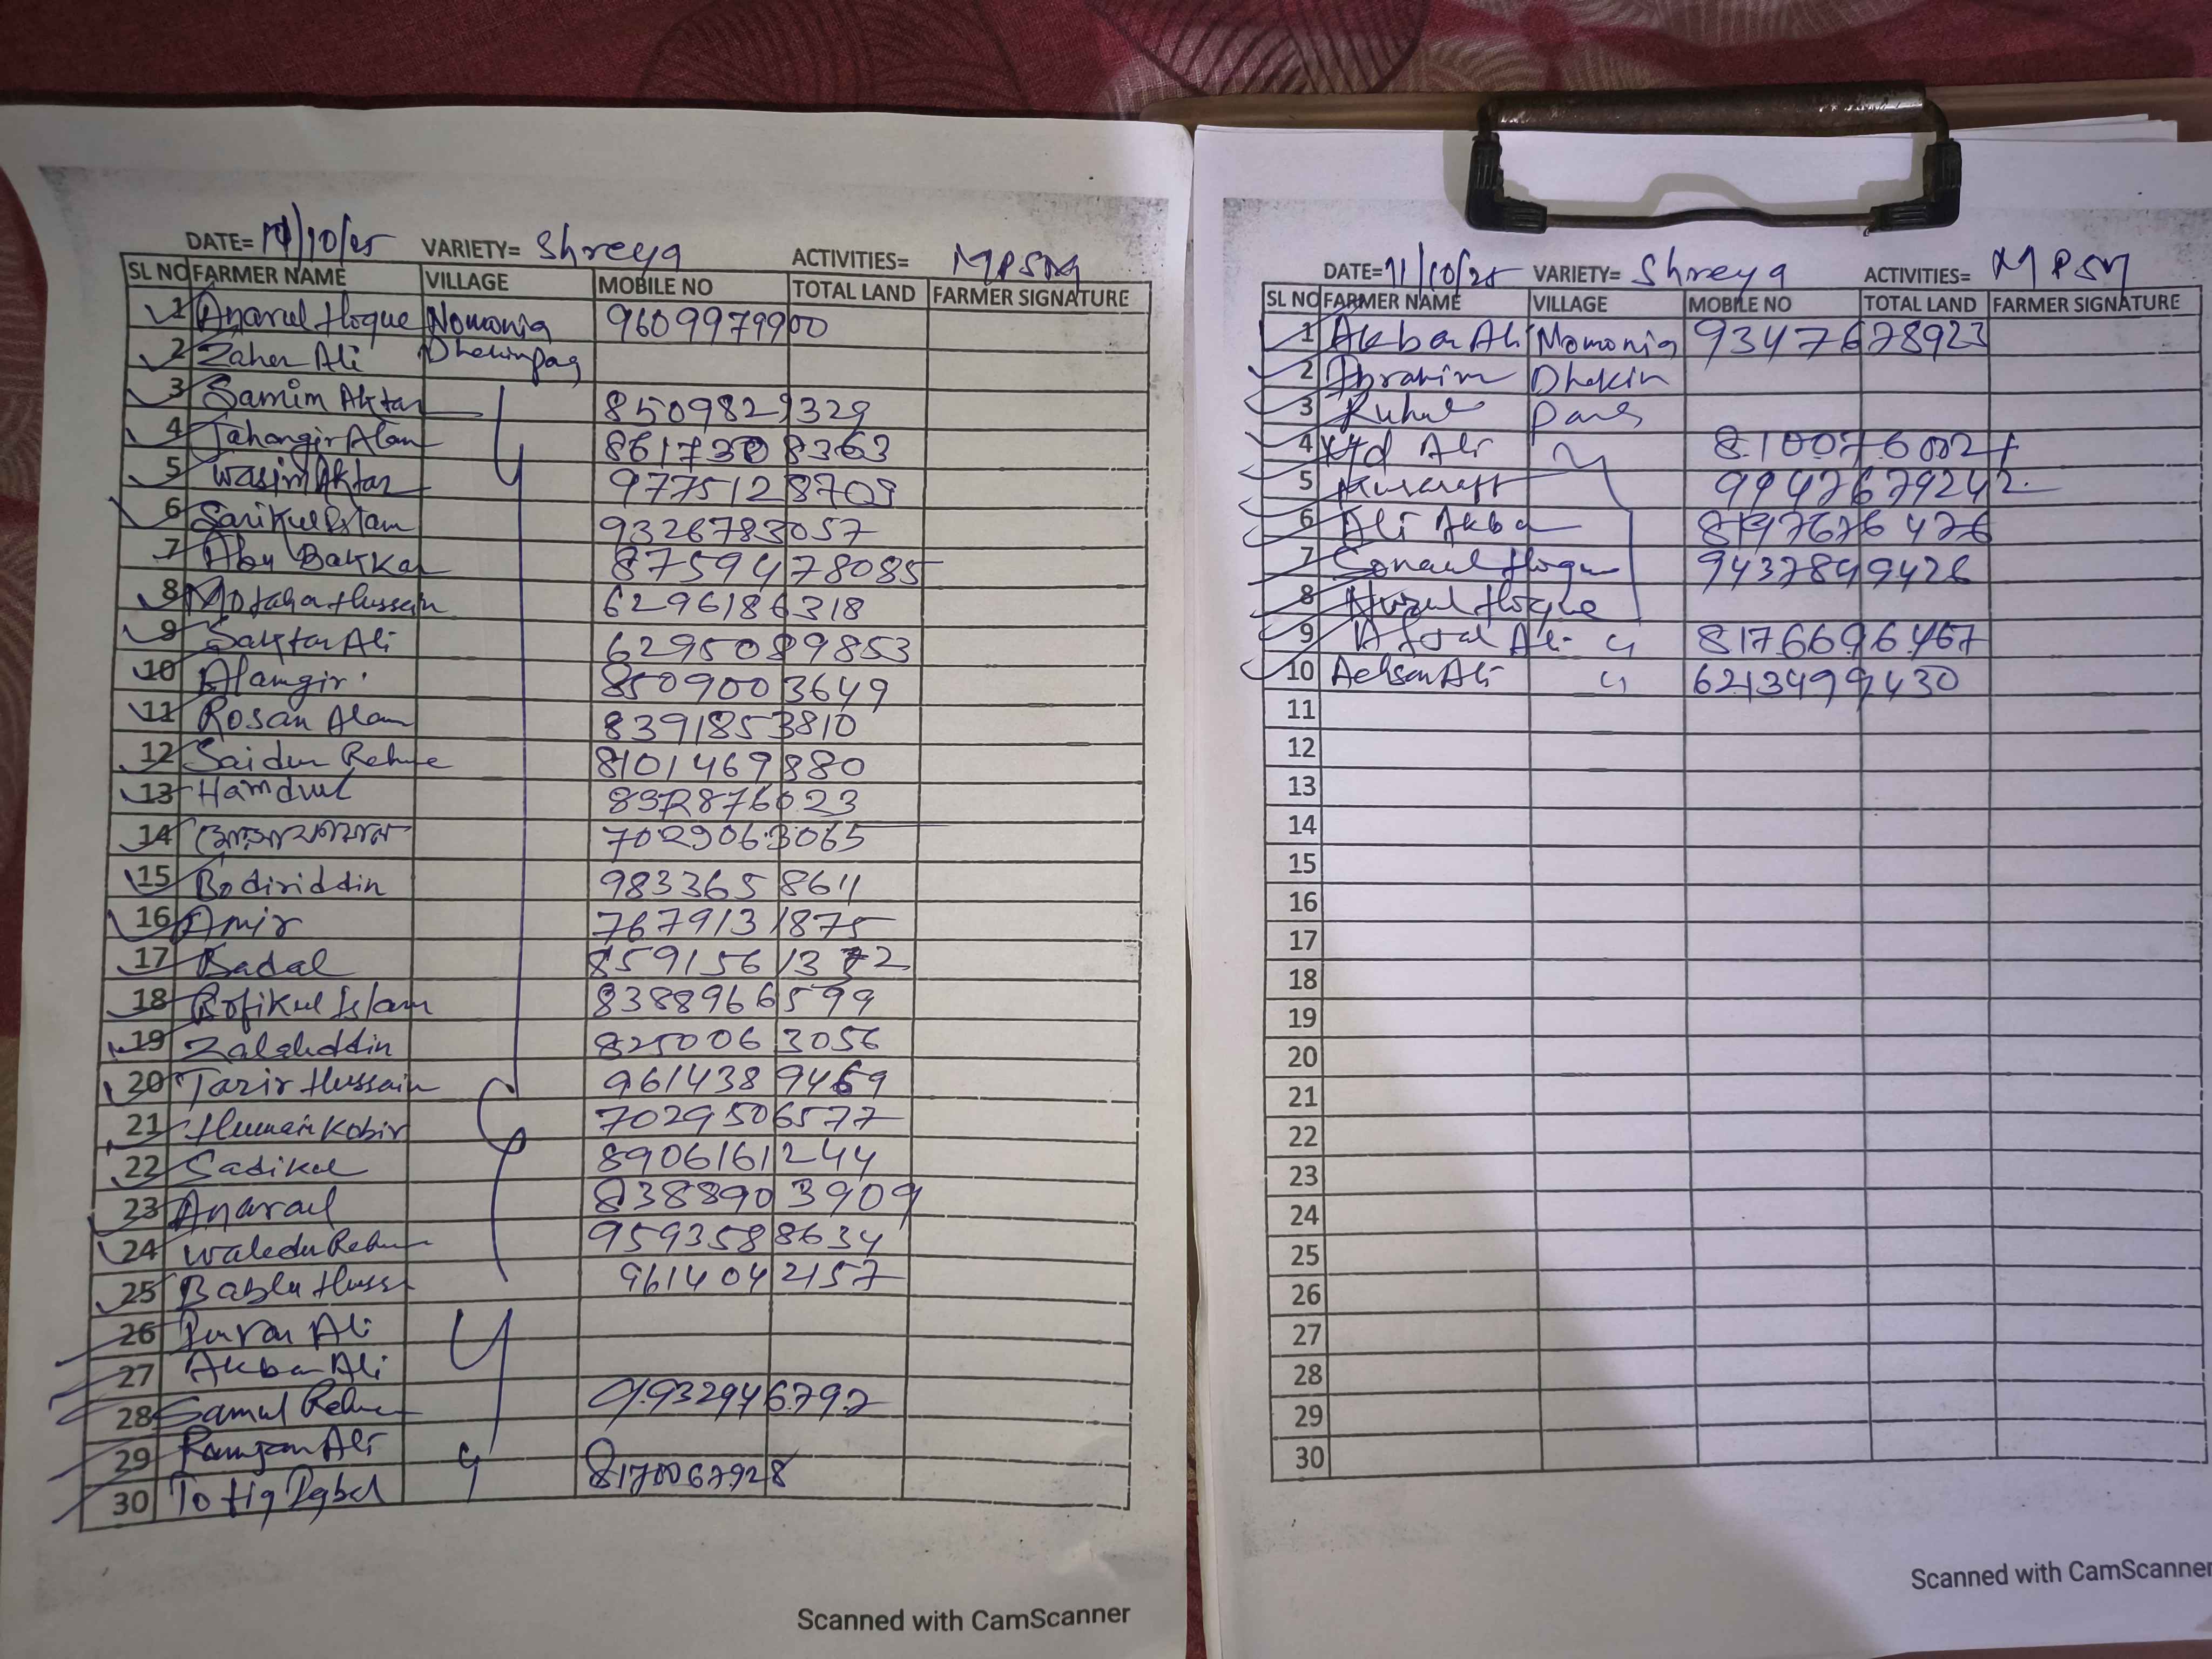 DATE= 11/10/25 VARIETY= Shreya ACTIVITIES= MPSM
SL NO FARMER NAME VILLAGE MOBILE NO TOTAL LAND FARMER SIGNATURE
1 Anarul Hoque Nomonia 9609979900
2 Zaher Ali Dhekinpag
3 Samim Aktar 8509829329
4 Jahangir Alam 8617308363
5 Wasim Aktar 9775128709
6 Sarikul Islam 9326783057
7 Abu Bakkar 8759478085
8 Motaha Hussain 6296186318
9 Saktar Ali 6295089853
10 Alamgir 8509003649
11 Rosan Alam 8391853810
12 Saidur Rehme 8101469880
13 Hamdul
14 7029063065
15 Bodiriddin 983365 8611
16 Amir 7679131875
17 Badal
18 Rofikul Islam 8388966599
19 Zalaluddin 8250063056
20 Tazir Hussain 9614389469
21 Humain Kobir 7029506577
22 Sadikul 8906161244
23 Anarul 8388903909
24 Waledu Rehm 9593588634
25 Bablu Huss 9614042157
26 Ali
27 Akbar Ali
28 Samul Rehm 9932946792
29 Ramjan Ali
30 Tofiq Iqbal 8170067928
Scanned with CamScanner
DATE= 11/10/25 VARIETY= Shreya ACTIVITIES= MPSM
SL NO FARMER NAME VILLAGE MOBILE NO TOTAL LAND FARMER SIGNATURE
1 Akbar Ali Momonia 9347678923
2 Ibrahim Dhekin
3 Ruhul Para
4 Md Ali
5 9947679242
6 Ali Akba
7 Sonaul Hoque 9437849426
8 Nurul Hoque
9 Afjal Ali 8176696467
10 Aehsan Ali 6213499430
11
12
13
14
15
16
17
18
19
20
21
22
23
24
25
26
27
28
29
30
Scanned with CamScanner